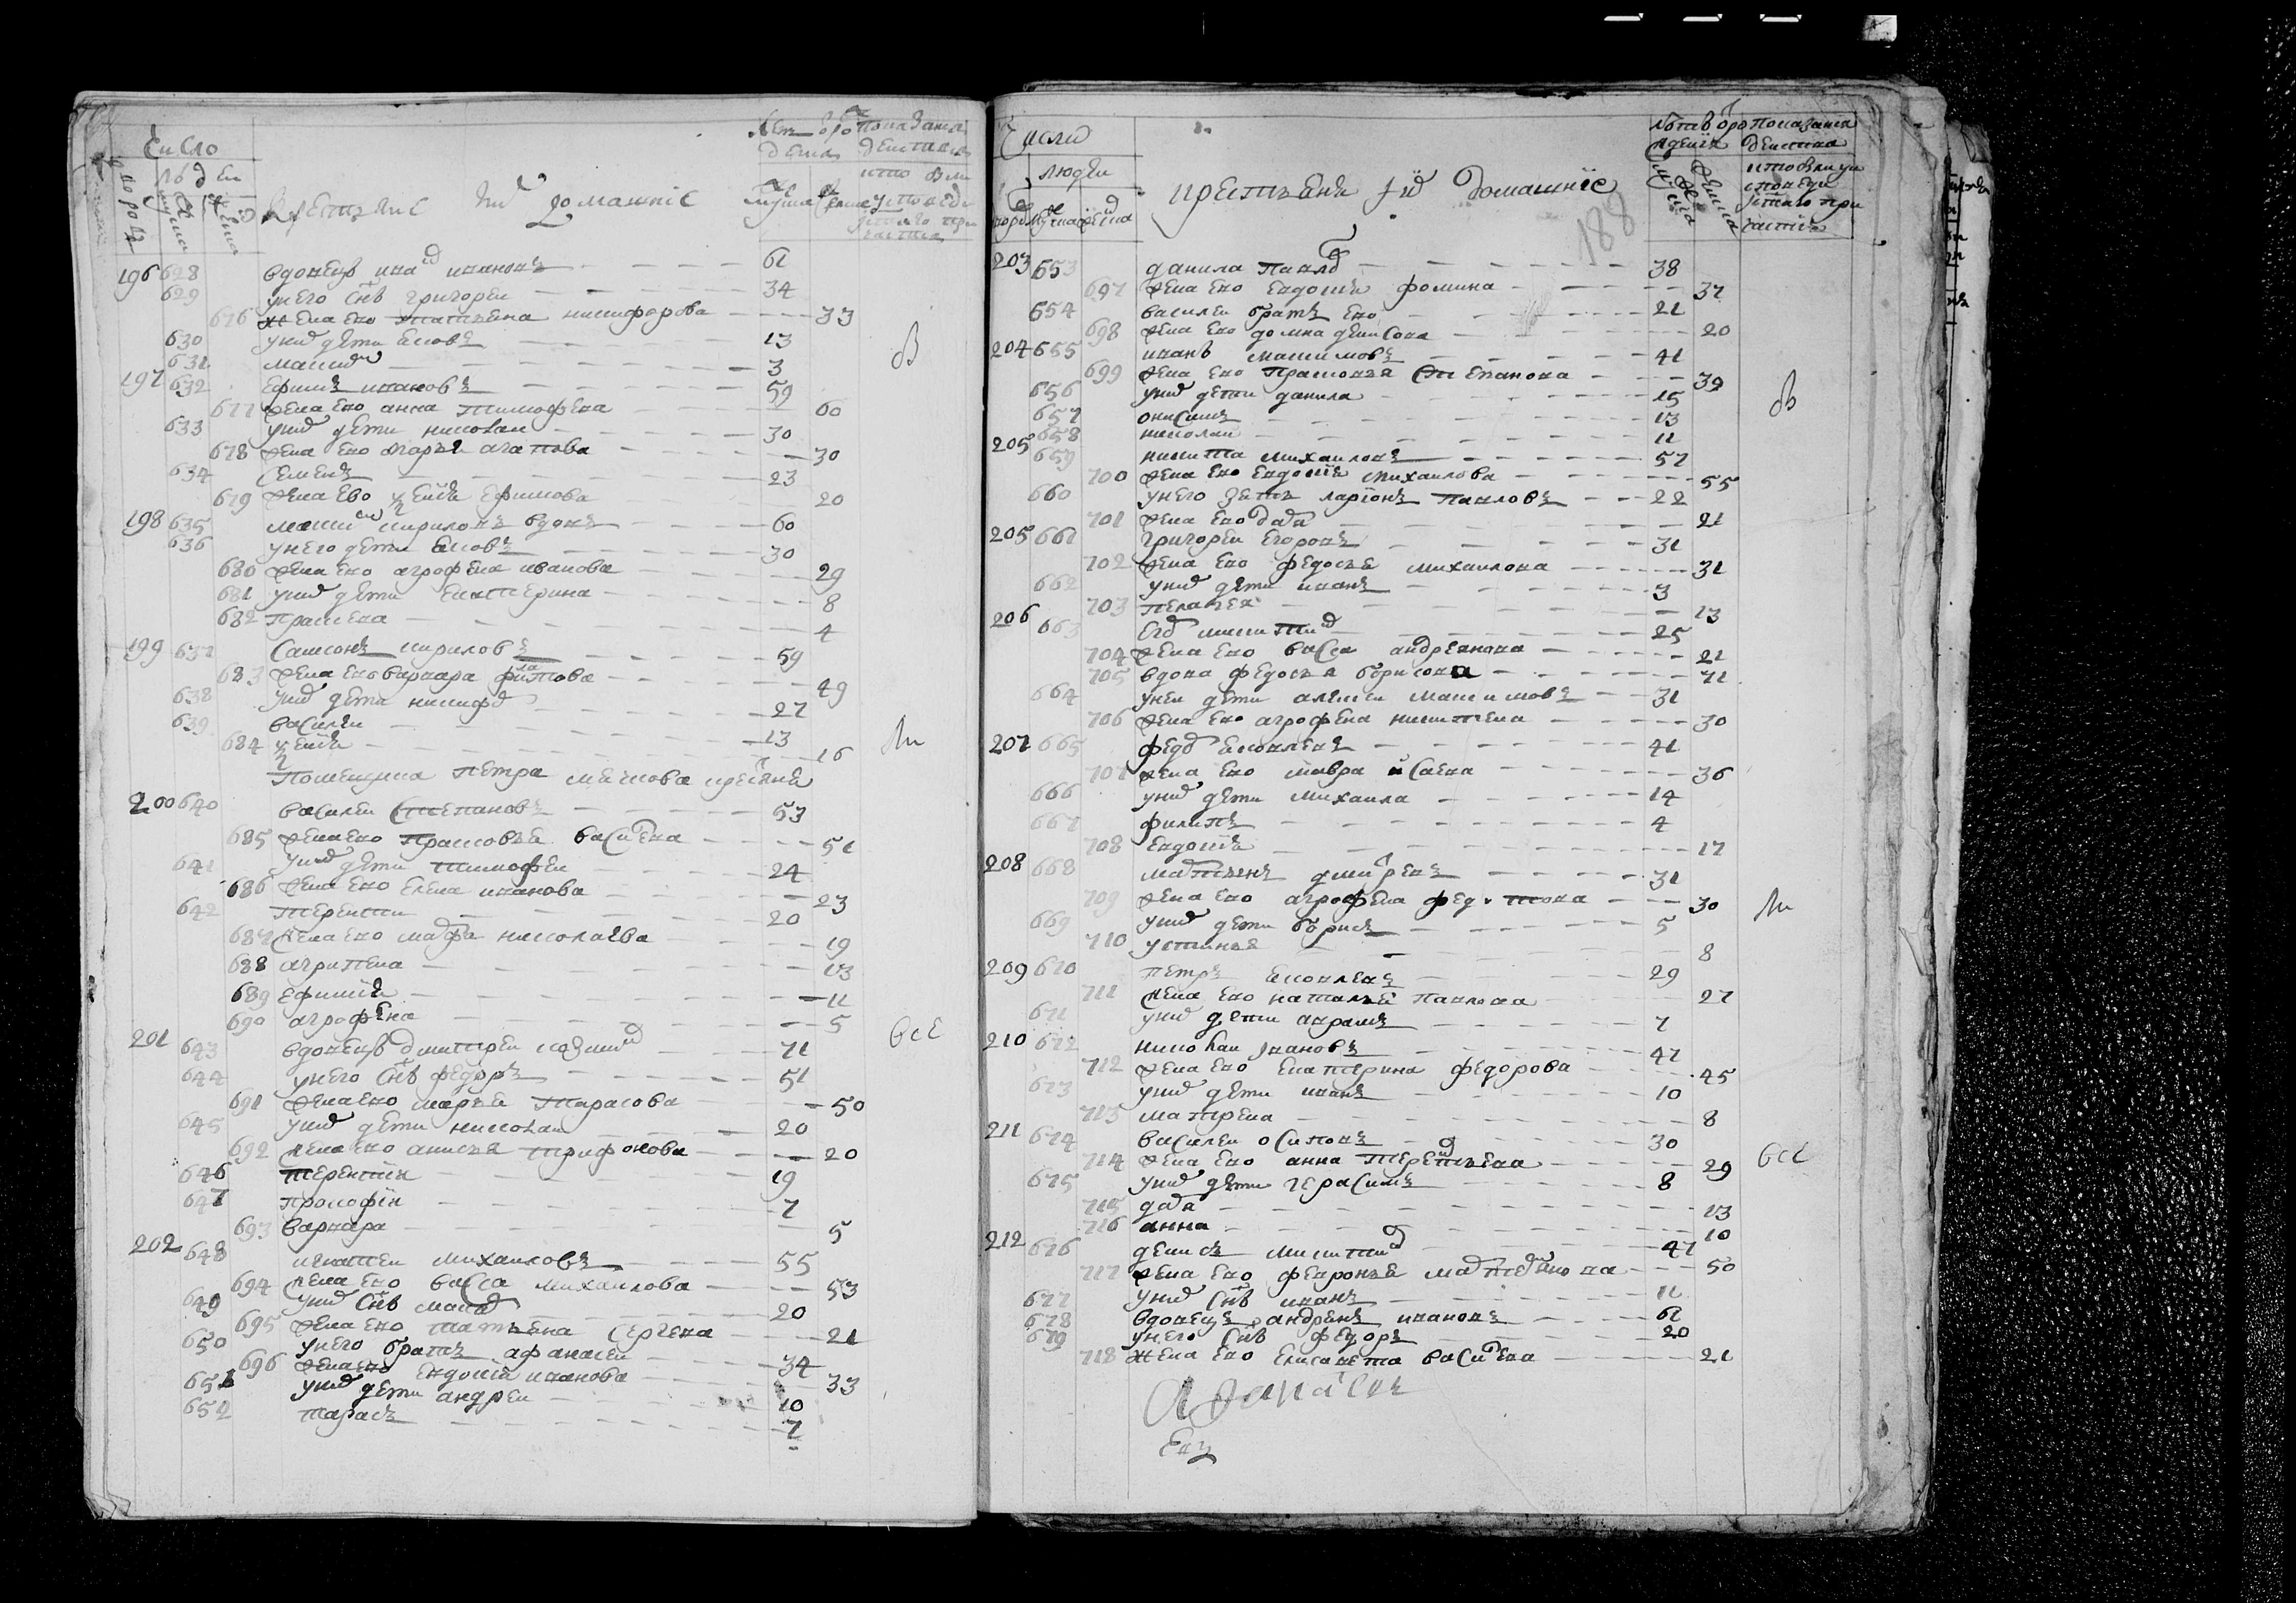 Число
людеи
крестьяне и их домашние
196 628 вдовецъ иванъ ивановъ 61
629 у него снъ григореи 34
676 жена ево татьяна никифорова 33
630 у них дети яковъ 13
631 максим 3
197 632 ефимъ ивановъ 59
677 жена ево анна тимофева 60
633 у них дети николаи 30
678 жена ево марья агапова 30
634 семенъ 23
679 жена ево ксения ефимова 20
198 635 максим кириловъ вдовъ 60
636 у него дети яковъ 30
680 жена ево агрофена иванова 29
681 у них дети екатерина 8
682 праскева 4
199 637 самсонъ кириловъ 59
683 жена ево варвара филатова 49
638 у них дети никифор 27
639 василеи 13
684 ксения 16
Помещика петра крестьяне
200 640 василеи степановъ 53
685 жена ево прасковья василева 51
641 у них дети тимофеи 24
686 жена ево елена иванова 23
642 терентеи 20
687 жена ево марфа николаева 19
688 агрипена 13
689 ефимия 11
690 агрофена 5
201 643 вдовецъ дмитреи козмин 71
644 у него снъ федоръ 51
691 жена ево марья тарасова 50
645 у них дети николаи 20
692 жена ево анисья трифонова 20
646 терентии 19
647 прокофии 7
693 варвара 5
все
202 648 игнатеи михаиловъ 55
694 жена ево васса михаилова 53
649 у них снъ макар 20
695 жена ево татьяна сергева 21
650 у него братъ афанасеи 34
696 жена ево евдокия иванова 33
651 у них дети андреи 10
652 тарасъ 7
Числа
людеи
крестьяне и их домашние
188
203 653 данила павлов 38
697 жена ево евдокия фомина 37
654 василеи братъ ево 21
698 жена ево домна денисова 20
204 655 иванъ максимовъ 41
699 жена ево прасковья степанова 39
656 у них дети данила 15
657 онисимъ 13
658 николаи 11
205 659 никита михаиловъ 57
700 жена ево евдокия михаилова 55
660 у него зять ларионъ павловъ 22
701 жена ево дарья 21
205 661 григореи егоровъ 31
702 жена ево федосья михаилова 31
662 у них дети иванъ 3
703 пелагея 13
206 663 егор никитин 25
704 жена ево васса андреянова 21
705 вдова федосья борисова 71
664 у неи дети алексеи максимовъ 31
706 жена ево агрофена никитена 30
207 665 федор яковлевъ 41
707 жена ево мавра исаева 36
666 у них дети михаила 14
667 филипъ 4
708 евдокия 17
208 668 матвеи дмитревъ 31
709 жена ево агрофена федотова 30
669 у них дети борисъ 5
710 устинья 8
209 670 петръ яковлевъ 29
711 жена ево наталья павлова 27
671 у них дети аврамъ 7
210 672 николаи ивановъ 47
712 жена ево екатерина федорова 45
673 у них дети иванъ 10
713 матрена 8
211 674 василеи осиповъ 30
714 жена ево анна терентьева 29
все
675 у них дети герасимъ 8
715 дарья 13
716 анна 10
212 676 денисъ никитин 47
717 жена ево февронья 50
677 у них снъ иванъ 11
678 вдовецъ андреянъ ивановъ 61
679 у него снъ федоръ 20
718 жена ево елисавета василева 21